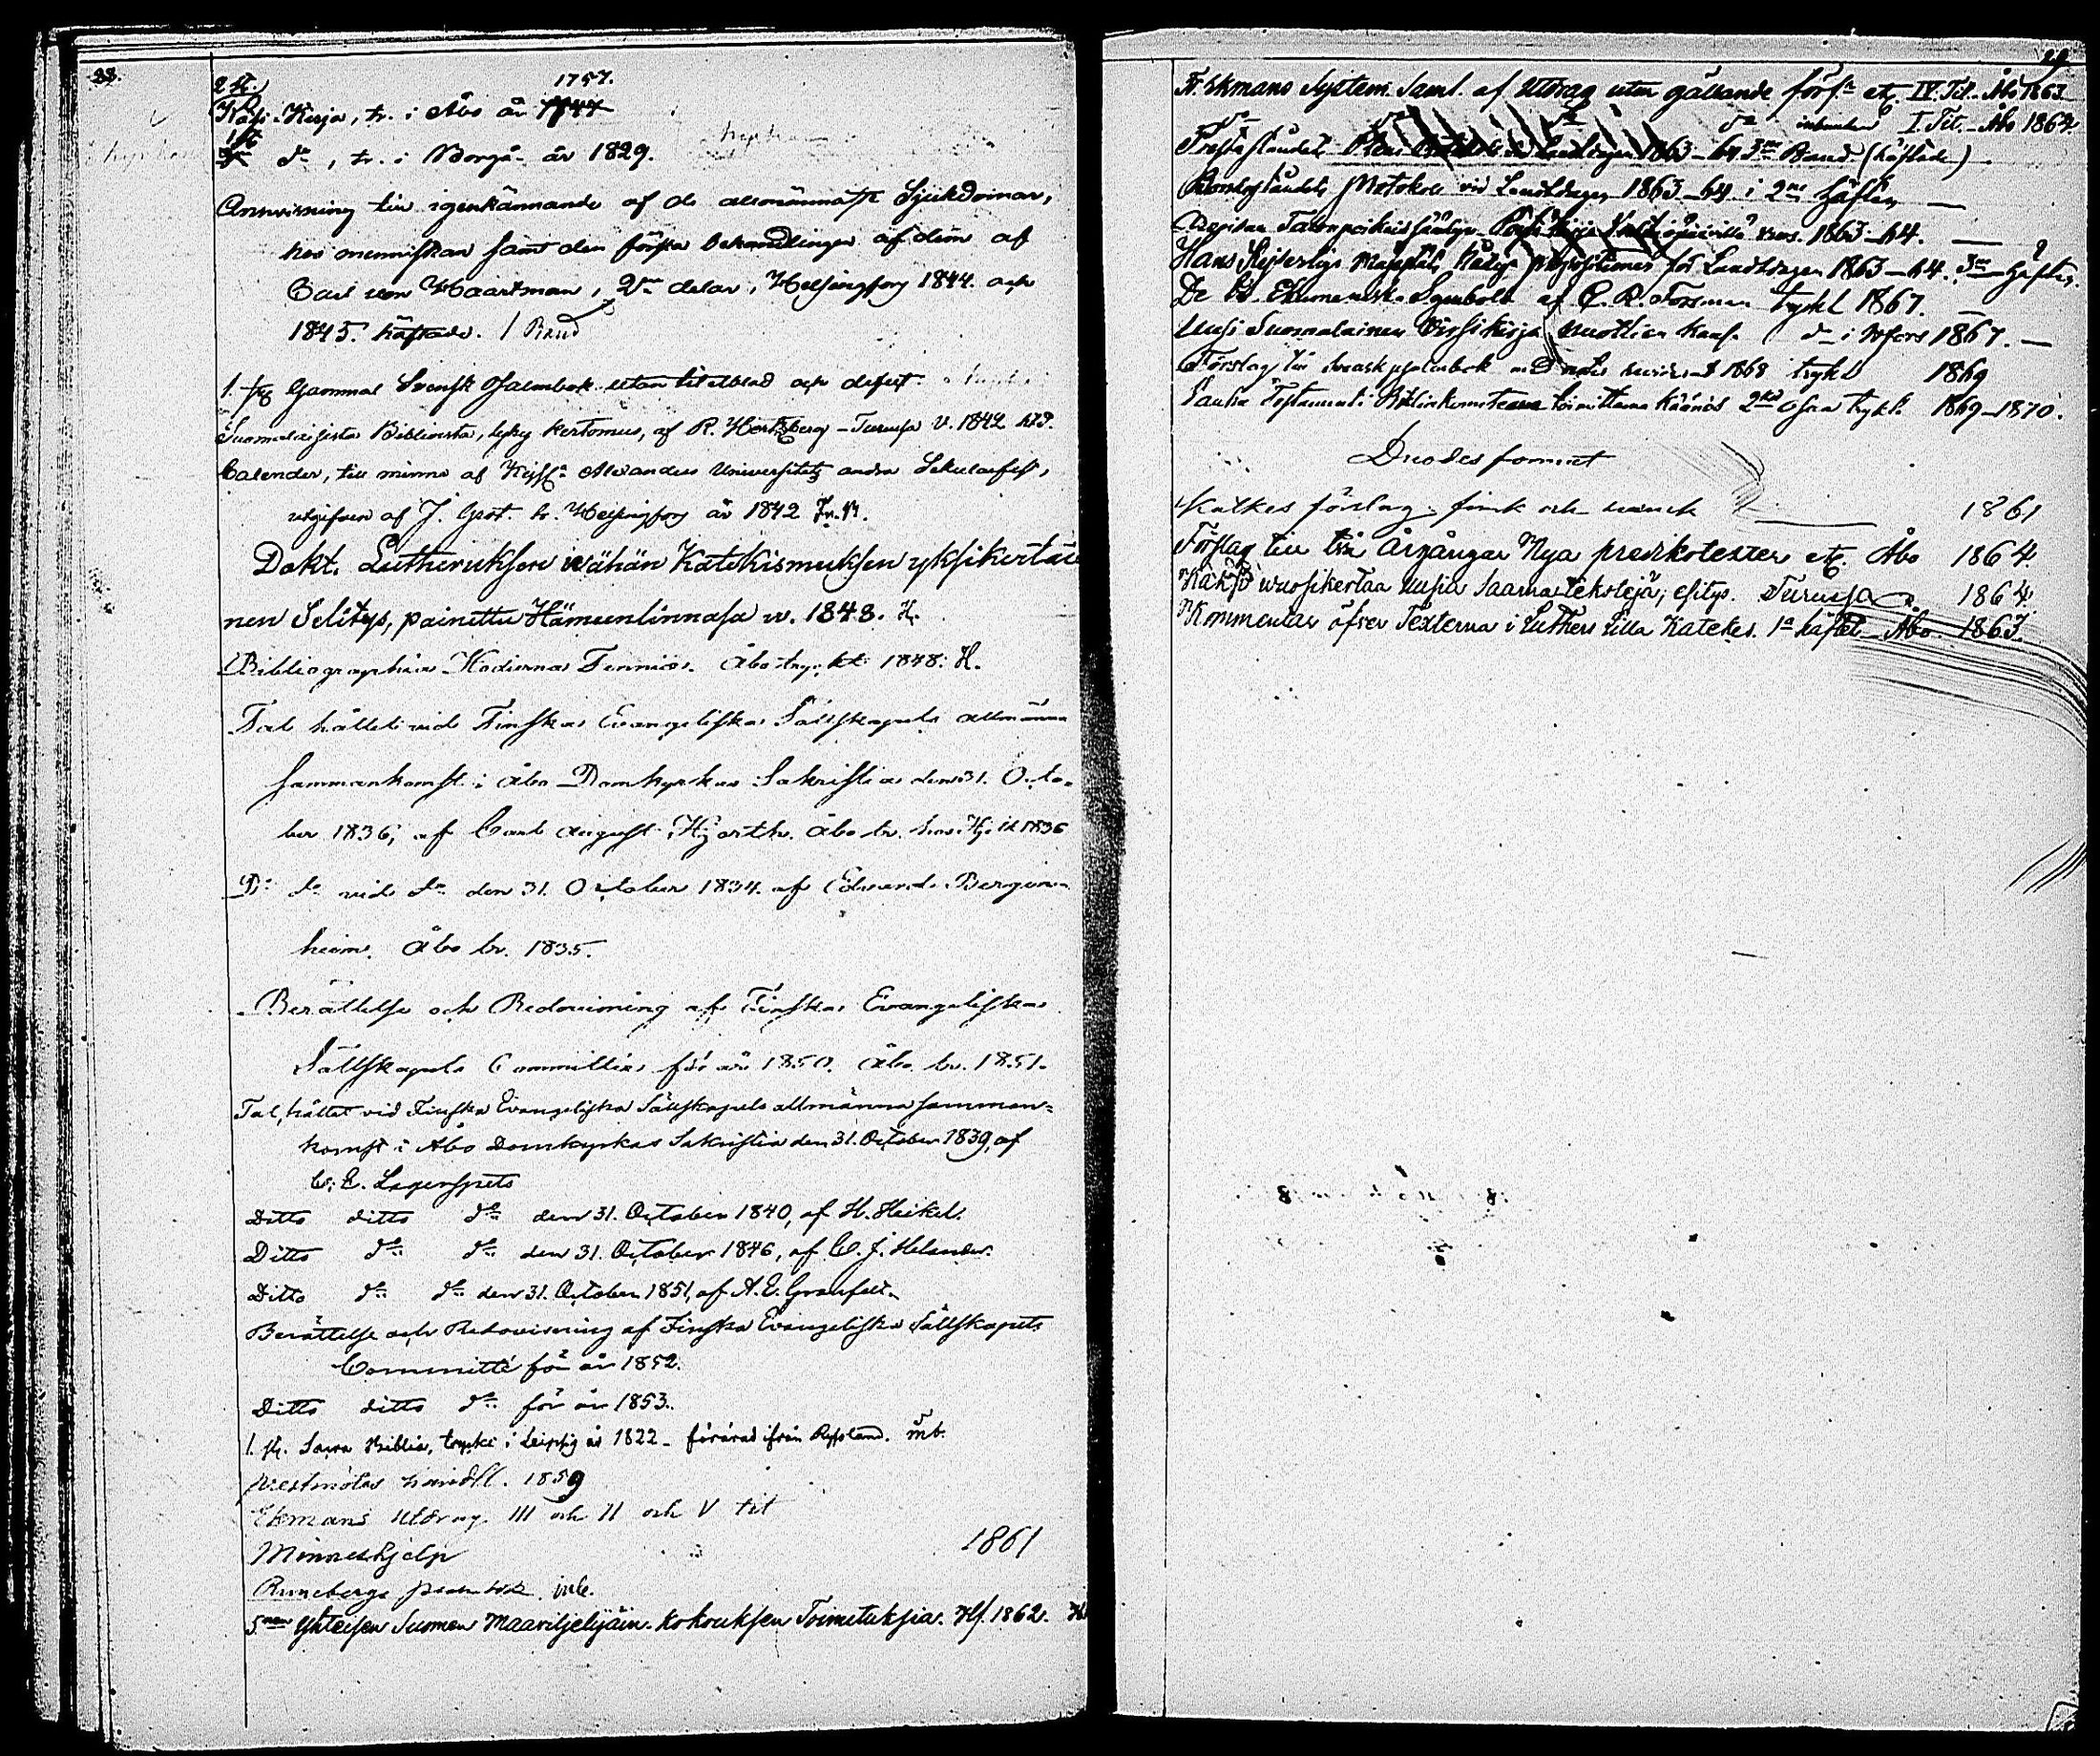 28.
2 st. 1757.
Käsi-Kirja, tr. i Åbo år 1744
1 st. do, tr. i Borgå år 1829.
Anvisning till igenkännande af de allmännaste Sjukdomar,
hos menniskan samt den första behandlingen af dem af
Carl von Haartman, 2ne delar, Helsingfors 1844. och
1845. häftade. 1 Band
1. st. Gammal Svensk Psalmbok utan titelblad och defect.
Suomalaisista Biblioista, lyhy kertomus, af R. Hertzberg - Turussa v. 1842
Calender, till minne af Kejs. Alexanders Universitets andra Sekularfest,
utgifven af J. Grot. tr. Helsingfors år 1842
Dokt. Lutheruksen wähän Katekismuksen yksikertai
nen Selitys, painettu Hämeenlinnasa w. 1848. H.
Bibliographia Hodierna Fennica. Åbo tryckt 1848. H.
Tal hållet vid Finska Evangeliska Sällskapets allmänna
sammankomst i Åbo Domkyrkas Sakristia den 31. Octo-
ber 1836, af Carl August Hjorth. Åbo tr. 1836
Do do vid do den 31. October 1834. af Edvard Bergen-
heim. Åbo tr. 1835.
Berättelse och Redovisning af Finska Evangeliska
Sällskapets Committée för år 1850. Åbo tr. 1851.
Tal, hållet vid Finska Evangeliska Sällskapets allmänna samman=
komst i Åbo Domkyrkas Sakristia den 31. October 1839, af
C. E. Lagerspets
Ditto ditto do den 31. October 1840, af H. Heikel.
Ditto do do den 31. October 1846, af C. J. Helander.
Ditto do do den 31. October 1851, af A. E. Granfelt.
Berättelse och Redovisning af Finska Evangeliska Sällskapets
Committé för år 1852.
Ditto ditto do för år 1853.
1. st. Sacra Biblia, tryckt i Leipzig år 1822 - förärad ifrån Ryssland.
Prestmötes handl. 1859
Ekmans Utdrag III och II och V tit
Minneshjelp 1861
Runebergs psalmbok inb.
5nen Yhteisen Suomen Maanviljelijäin-kokouksen Toimituksia. Hf. 1862. H
29
Fr. Ekmans System. Saml. af Utdrag utur gällande förf. etc. IV. Tit. Åbo 1863
do do do do inbunden I. Tit. Åbo 1864.
Presteståndets Protokoll vid Landtdagen 1863-64 3ne Band. (häftade)
Borgarståndets Protokoll vid Landtdagen 1863-64 i 2ne häften —
Talonpoikaissäädyn Pöytäkirja Valtiopäivillä vuos. 1863-64. —
Hans Kejserliga Majestäts Nådiga propositioner för Landtdagen 1863-64. 3ne häften.
De Ekumeniska Symbola af Forsman tryckt 1867. —
Uusi Suomalainen Virsikirja nuottien kans. do i Hfors 1867. —
Förslag till svensk psalmbok 1868 tryckt 1869
Testamenti Biblia-komitean toimittama käännös 2 osa tryckt 1869-1870.
Duodes format
Katkes förslag. finsk och svensk — 1861
Förslag till två Årgångar Nya predikotexter etc. Åbo 1864.
Kaksi wuosikertaa uusia Saarna teksteja, esitys. Turussa 1864.
Kommentar öfver Texterna i Luthers Lilla Katekes. 1a häftet Åbo 1863.